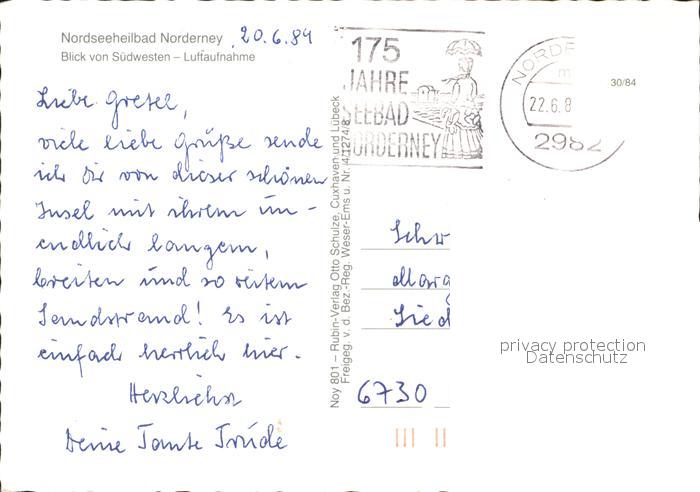 Nordseeheilbad Norderney
20.6.84
Blick von Südwesten – Luftaufnahme
Liebe Gretel,
viele liebe Grüße sende
ich Dir von dieser schönen
Insel mit ihrem un-
endlich langem,
breiten und so weitem
Sandstrand! Es ist
einfach herrlich hier.
Herzlichst
Deine Tante Trude
Noy 801 – Rubin-Verlag Otto Schulze, Cuxhaven und Lübeck
Freigeg. v. d. Bez.-Reg. Weser-Ems u. Nr. 4/1274/8
175
JAHRE
SEEBAD
NORDERNEY
NORDE
m
22.6.8
2982
30/84
Schw
Marg
Sied
6730
privacy protection
Datenschutz